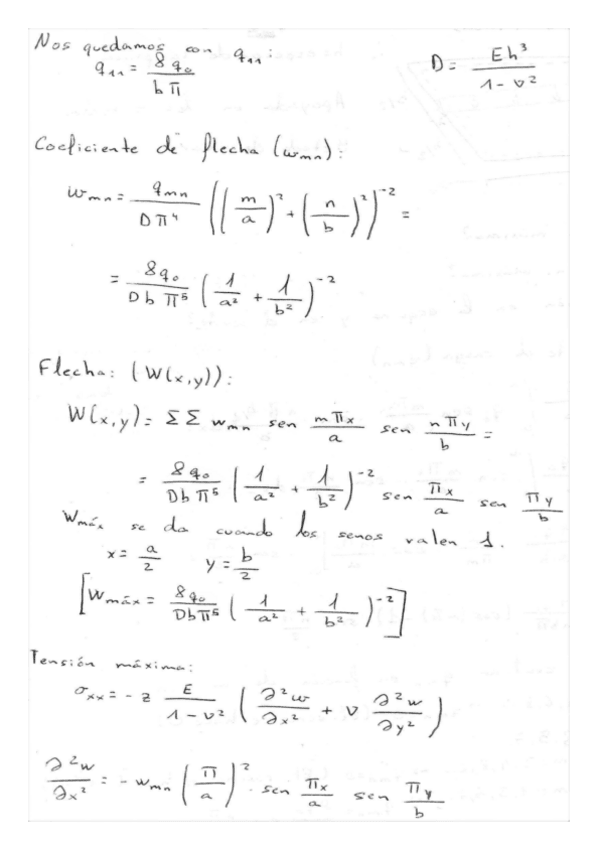 Nos quedamos con q₁₁:
q₁₁ = 8 q₀ / b π
D = E h³ / 1 - ν²
Coeficiente de flecha (wₘₙ):
wₘₙ = qₘₙ / D π⁴ ((m/a)² + (n/b)²)⁻² =
= 8q₀ / D b π⁵ (1/a² + 1/b²)⁻²
Flecha: (W(x,y)):
W(x,y) = Σ Σ wₘₙ sen mπx/a sen nπy/b =
= 8q₀ / Db π⁵ (1/a² + 1/b²)⁻² sen πx/a sen πy/b
Wmáx se da cuando los senos valen 1.
x = a/2 y = b/2
[Wmáx = 8q₀ / Dbπ⁵ (1/a² + 1/b²)⁻²]
Tensión máxima:
σₓₓ = - z E / 1 - ν² (∂²w/∂x² + ν ∂²w/∂y²)
∂²w/∂x² = - wₘₙ (π/a)² · sen πx/a sen πy/b